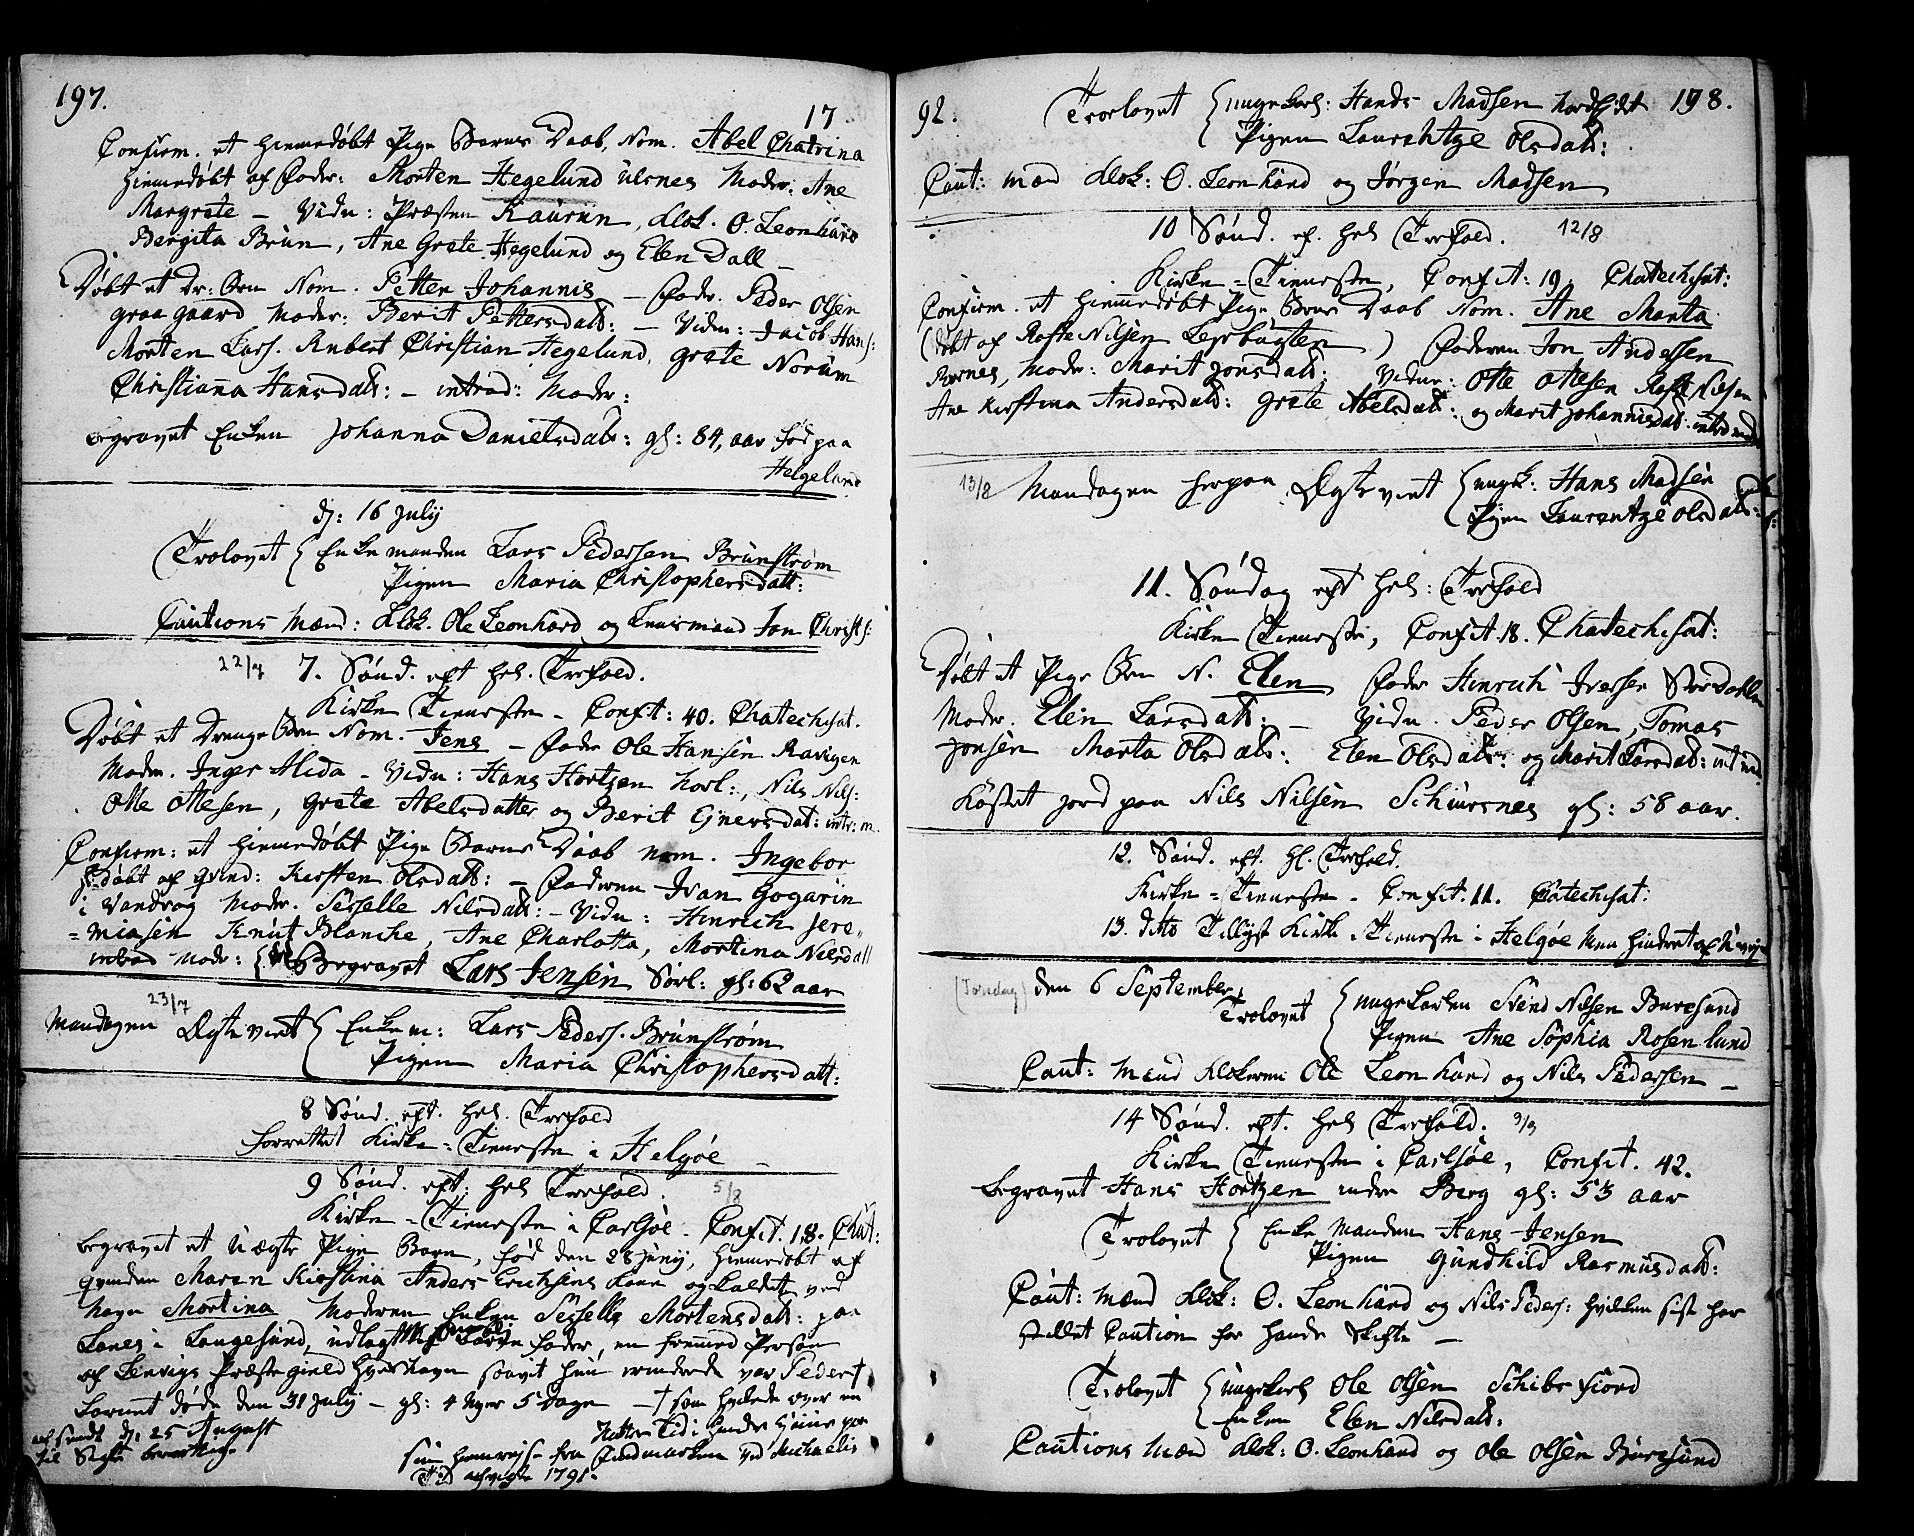 197.
17
Confirm. et hiemmedøbt Pige Barns Daab, Nom. Abel Chatrina
hiemmedøbt af Fader: Morten Hegelund Ulsnes Moder: Ane
Margrete – Vidn: Præsten Kaurin, Klok. O. Leonhard
Bergita Brun, Ane Grete Hegelund og Elen Dall –
Døbt et Dr: Brn Nom. Petter Johannis – Fadr. Peder Olsen
graagaard Moder: Berit Pettersdatt: – Vidn: Jacob Hans:
Morten Lars. Rubert Christian Hegelund, Grete Norum
Christianna Hansdatt: – introd: Moder:
begravet Enken Johanna Danielsdatt: gl: 84, aar fød paa
Helgeland
d: 16 July
Trolovet Enkemanden Lars Pedersen Brunstrøm
Pigen Maria Christophersdatt:
Cautions Mænd: Klok. Ole Leonhard og Jon Christ:
22/7 7. Sønd. eft hel. Trefold.
Kirke Tieneste – Confit: 40. Chatechisat.
Døbt et Drenge Brn Nom. Jens – Fadr Ole Hansen Ravigen
Modr. Inger Alida – Vidn: Hans Hortzen Karl:, Nils Nils:
Otte Ottesen, Grete Abelsdatter og Berit Ejnersdat: intr: m.
Confirm: et hiemmedøbt Pige Barns Daab nom. Ingebor
døbt af qvind: Kirsten Olsdatt: – Faderen Ivan Gogariin
i Vandvog Modr. Sesselle Nilsdatt: – Vidn: Hinrich Jere-
=miasen Knut Blanche, Ane Charlotta, Mortina Nilsdatt
introd Modr: Begravet Lars Jensen Sørl: gl: 62 aar
23/7
Mandagen Ægteviet Enkem: Lars Peders. Brunstrøm
Pigen Maria Christophersdatt:
8 Sønd. eft. hel. Trefold
forrettet Kirke-Tieneste i Helgøe –
9 Sønd. eft. hel Trefold. 5/8
Kirke-Tieneste i Carlsøe – Confit. 18. Chat:
begravet et Uægte Pige Barn, fød den 28 Juny, hiemmedøbt af
qvinden Maren Kirstina Anders Erichsens Kone og kaldet ved
Navn Mortina Moderen Enken Sesselle Mortensdatt: paa
Lanes i Langesund, udlagt til Barne fader, en fremmed Person
af Lenvigs Præstegield hvis Navn saavit hun erindrede var Peder †
barnet døde den 31 July – gl: 4 Uger 5 Dage – † som hvilede over en
Natte Tid i hendes Huus paa
afsendt d: 25 August
til
sin hiemrejse fra Findmarken ved Michaelis
Tid afvigte 1791.
92.
198.
Trolovet unge Karl: Hands Madsen Nordfidt
Pigen Laurentze Olsdatt:
Caut: mæn Klok: O. Leonhard og Jørgen Madsen
10 Sønd. ef. hel Trefold. 12/8
Kirke-Tieneste, Confit: 19, Chatechisat:
Confirm. et hiemmedøbt Pige Barns Daab Nom. Ane Marta
(døbt af Rofte Nilsen Leirbugten) Faderen Jon Andersen
Rørnes, Modr: Marit Jonsdatt: Vidne: Otte Ottesen Rofte Nilsen
Ane Kirstina Andersdatt: Grete Abelsdatt: og Marit Johannisdat introd mod
13/8 Mandagen herpaa Ægteviet ungk: Hans Madsen
Pigen Laurentze Olsdatt:
11. Søndag eft hel: Trefold
Kirke Tieneste, Confit. 18. Chatechisat:
Døbt et Pige Brn N. Elen Fader Hinrich Iversen Stordahlen
Modr. Elen Larsdatt: – Vidn. Peder Olsen, Tomas
Jonsen Marta Olsdatt: Elen Olsdatt: og Marit Larsdat: int mod
Kastet jord paa Nils Nilsen Schiursnes gl: 58 aar.
12. Sønd. eft. hl. Trefold.
Kirke-Tieneste – Confit. 11. Catechisat:
13. dito Tillyst Kirke Tieneste i Helgøe men hindret af
(Torsdag) den 6 September,
Trolovet unge Karlen Svend Nilsen Buresund
Pigen Ane Sophia Rosenlund
Caut: Mænd Klokeren Ole Leonhard og Nils Pedersen –
14 Sønd. eft. hel Trefold. 9/9
Kirke Tieneste i Carlsøe, Confit. 42.
begravet Hans Hortzen indre Berg gl: 53 aar
Trolovet Enke Manden Hans Jensen
Pigen Gundhild Rasmusdatt:
Caut: Mænd Klok: O. Leonhard og Nils Peders: hvilken sist har
stillet Caution for hands Skifte –
Trolovet unge Karl Ole Olsen Schibs fiord
Enken Elen Nilsdatt:
Cautions Mæn Klok: O. Leonhard og Ole Olsen Buresund